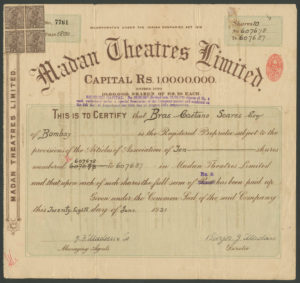 INCORPORATED UNDER THE INDIAN COMPANIES ACT 1913
No. 7761
Shares 10
607678
to 607687
Madan Theatres Limited.
CAPITAL RS. 1,00,00,000.
DIVIDED INTO
10,00,000 SHARES OF RS. 10 EACH.
THIS IS TO CERTIFY that Bras Caetano Soares Esq
of Bombay is the Registered Proprietor subject to the
provisions of the Articles of Association of Ten shares
numbered 607678 to 607687 in Madan Theatres Limited
and that upon each of such shares the full sum of has been paid up
Given under the Common Seal of the said Company
this Twenty Eighth Day of June 1921
Managing Agents
Director
MADAN THEATRES LIMITED